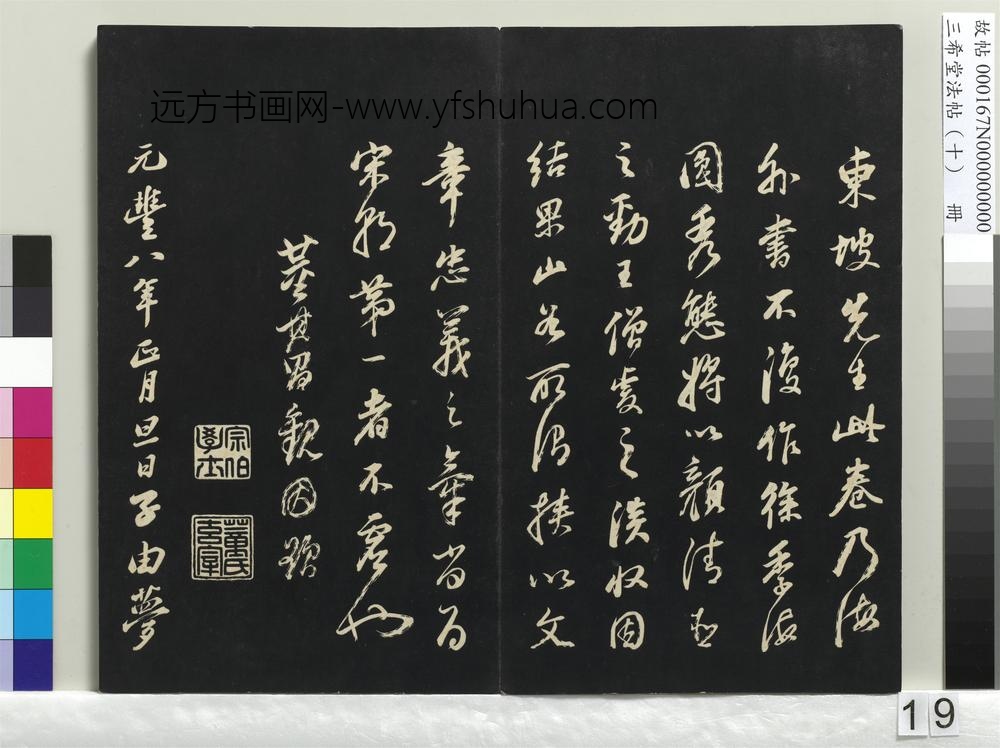 故帖 000167N000000000
三希堂法帖（十） 冊
远方书画网-www.yfshuhua.com
東坡先生此卷乃海
外書不復作徐季海
圓秀態將以顏清臣
之勁王僧虔之淡收因
結果山谷所謂挾以文
章忠義之氣當為
宋朝第一者不虛也
董其昌觀因題
宗伯學士
董氏玄宰
元豐八年正月旦日子由夢
19